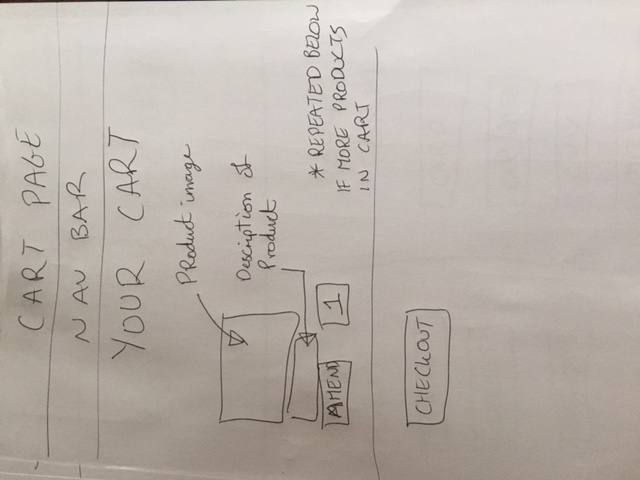 CART PAGE
NAV BAR
YOUR CART
PRoduct image
Description of
Product
AMEND 1
* REPEATED BELOW
IF MORE PRODUCTS
IN CART
CHECKOUT